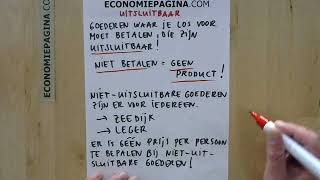 ECONOMIEPAGINA.COM
UITSLUITBAAR
GOEDEREN WAAR JE LOS VOOR
MOET BETALEN, DIE ZIJN
UITSLUITBAAR!
NIET BETALEN = GEEN
PRODUCT!
NIET-UITSLUITBARE GOEDEREN
ZIJN ER VOOR IEDEREEN.
→ ZEEDIJK
→ LEGER
ER IS GÉÉN PRIJS PER PERSOON
TE BEPALEN BIJ NIET-UIT-
SLUITBARE GOEDEREN!
ECONOMIEPAGINA.COM